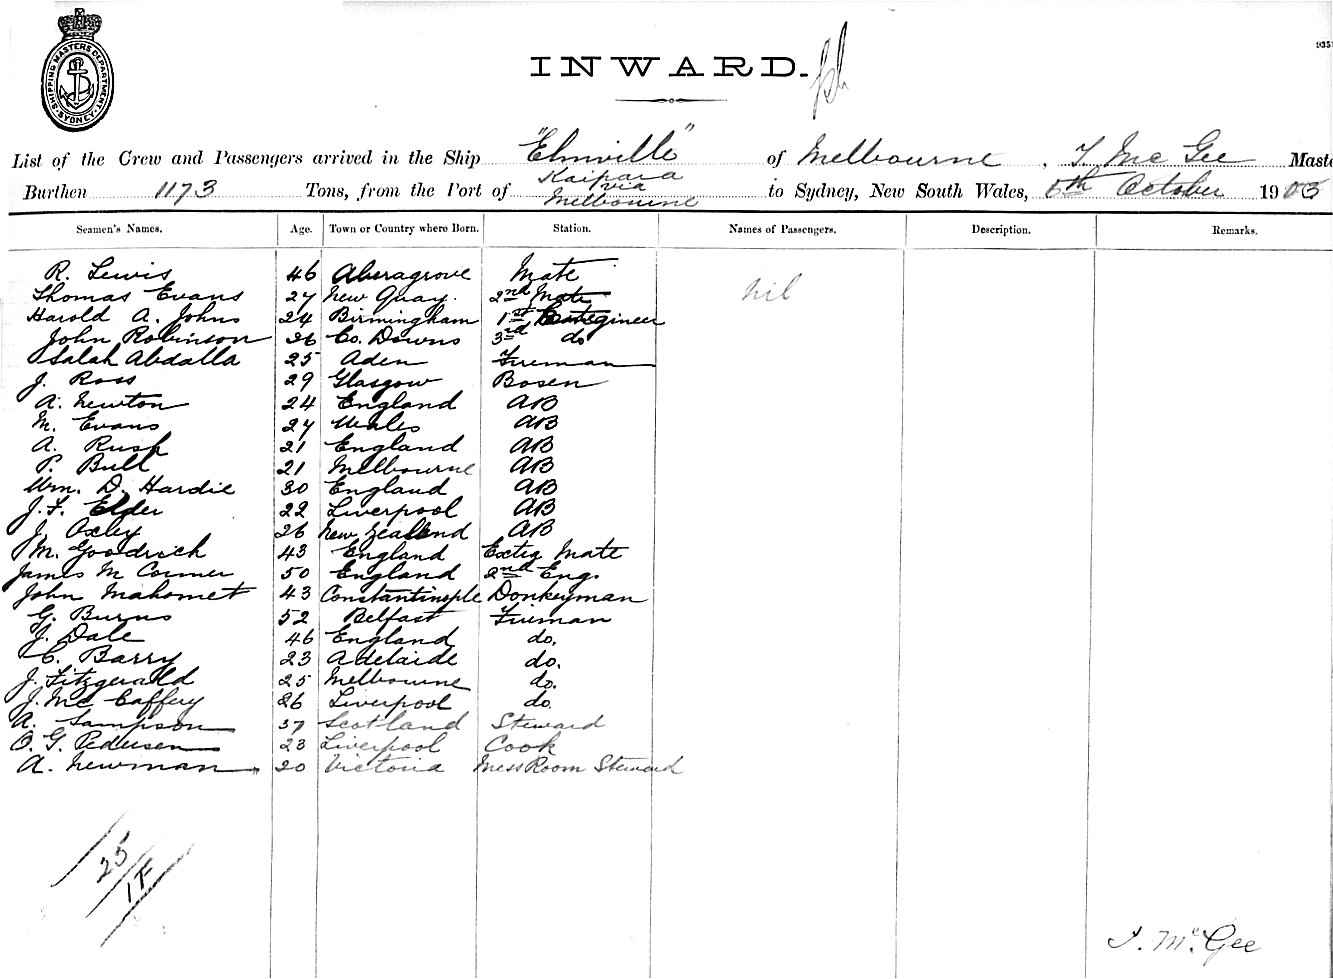 SHIPPING MASTERS DEPARTMENT SYDNEY
INWARD.
List of the Crew and Passengers arrived in the Ship "Elmville" of Melbourne, T Mc Gee Maste
Burthen 1173 Tons, from the Port of Kaipara via Melbourne to Sydney, New South Wales, 5th October 1903
Seamen's Names. Age. Town or Country where Born. Station. Names of Passengers. Description. Remarks.
R. Lewis 46 Mate nil
Thomas Evans 27 New Quay. 2nd Mate
Harold A. Johns 24 Birmingham 1st
John Robinson 26 Co. Downs 3rd do
Salah Abdalla 25 Aden Fireman
J. Ross 29 Glasgow Bosen
A. Newton 24 England AB
M. Evans 27 Wales AB
A. Rush 21 England AB
P. Bull 21 Melbourne AB
Wm. D. Hardie 30 England AB
J. F. Elder 22 Liverpool AB
J. Oxley 26 New Zealand AB
M. Goodrich 43 England Mate
James M Cormer 50 England 2nd Eng.
John Mahomet 43 Constantinople Donkeyman
G. Burns 52 Belfast Fireman
J. Dale 46 England do.
C. Barry 23 Adelaide do.
J. Fitzgerald 25 Melbourne do.
J. Mc Caffery 26 Liverpool do.
A. Sampson 37 Scotland Steward
O. G. Pedersen 23 Liverpool Cook
A. Newman 20 Victoria Mess Room Steward
25
1F
T. McGee